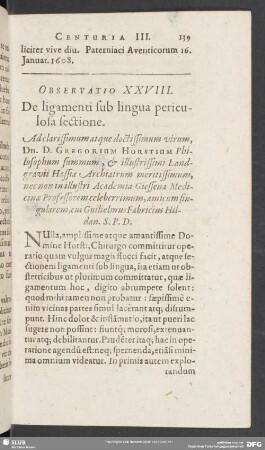 CENTURIA III. 139
liciter vive diu. Paterniaci Aventicorum 16.
Januar. 1608.
OBSERVATIO XXVIII.
De ligamenti sub lingua pericu-
losa sectione.
Ad clarissimum atque doctissimum virum,
DN. D. GREGORIUM HORSTIUM Phi-
losophum summum, & illustrissimi Land-
gravii Hassiæ Archiatrum meritissimum,
nec non in illustri Academia Giessena Medi-
cinæ Professorem celeberrimum, amicum sin-
gularem, cui Guilielmus Fabricius Hil-
dan. S. P. D.
NUlla, amplissime atque amantissime Do-
mine Horsti, Chirurgo committitur ope-
ratio quam vulgus magis flocci facit, atque se-
ctionem ligamenti sub lingua, siia etiam ut ob-
stetricibus ut plurimum committatur, quæ li-
gamentum hoc, digito abrumpere solent:
quod mihi tamen non probatur: sæpissimè e-
nim vicinas partes simul lacerant atq; disrum-
punt. Hinc dolor & inflãmatio, ita ut pueri lac
sugere non possint: fiuntq; morosi, extenuan-
tur atq; debilitantur. Prudéter itaq; hac in ope-
ratione agendũ est: neq; spernenda, etiãsi mini-
ma omnium videatur. In primis autem explo-
randum
SLUB
DFG